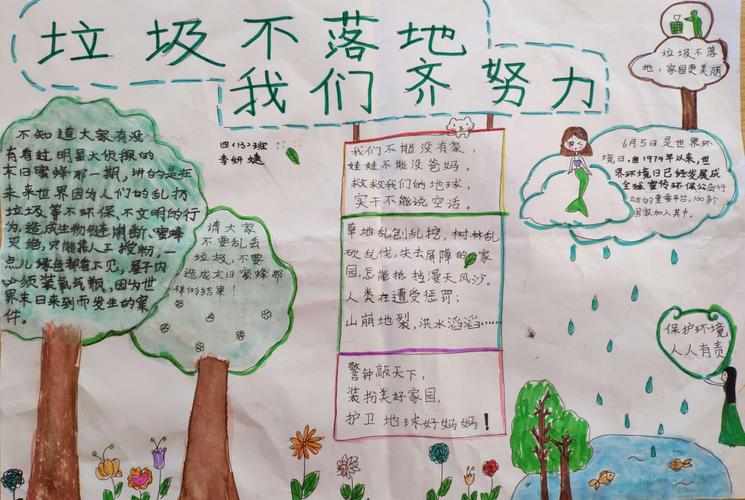 垃圾不落地
我们齐努力
垃圾不落
地,家园更美丽
四(13)班
李妍婕
不知道大家有没
有看过明星大侦探的
末日蜜蜂那一期,讲的是在
未来世界因为人们的乱扔
垃圾等不环保,不文明的行
为造成生物链崩断、蜜蜂
灭绝,只能靠人工授粉,一
点儿绿色都看不见,屋子内
必须装氧气瓶,因为世
界末日来到而发生的案
件。
请大家
不要乱丢
垃圾,不要
造成末日蜜蜂那
样的结果!
我们不能没有家,
娃娃不能没爸妈。
救救我们的地球,
实干不能说空话。
草地乱刨乱挖,树林乱
砍乱伐,失去屏障的家
园,怎能抵挡漫天风沙。
人类在遭受惩罚;
山崩地裂,洪水滔滔……
警钟敲天下,
装扮美好家园,
护卫地球好妈妈!
6月5日是世界环
境日,自1974年以来,世
界环境日已经发展成
全球宣传环保公益行
动的重要平台,100多个
国家加入其中。
保护环境
人人有责